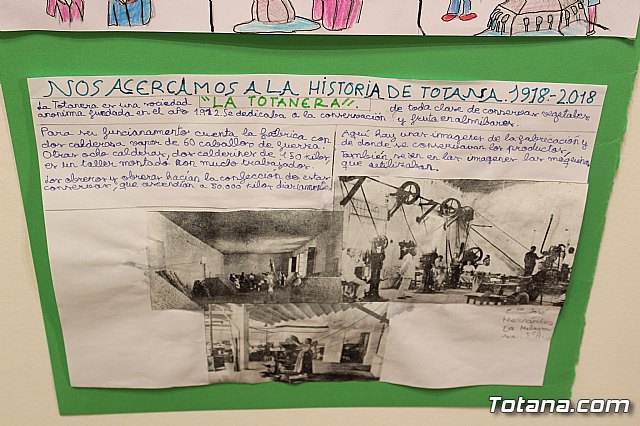 NOS ACERCAMOS A LA HISTORIA DE TOTANA. 1918-2018
"LA TOTANERA".
La Totanera es una sociedad
anonima fundada en el año 1912. Se dedicaba a la conservación
de toda clase de conservas vegetales
y fruta en almibares.
Para su funcionamiento cuenta la fábrica con
dos calderas a vapor de 60 caballos de fuerza.
Otras ocho calderas, dos calderines de 150 kilos
es un taller montado con nuestro trabajador.
Los obreros y obreras hacían la confección de estas
conservas, que ascendían a 80.000 kilos diariamente.
Aquí hay unas imágenes de la fabricación y
de donde se conservaban los productos.
También salen en las imágenes las máquinas
que utilizaban.
José
Hernández
La
Totana.com